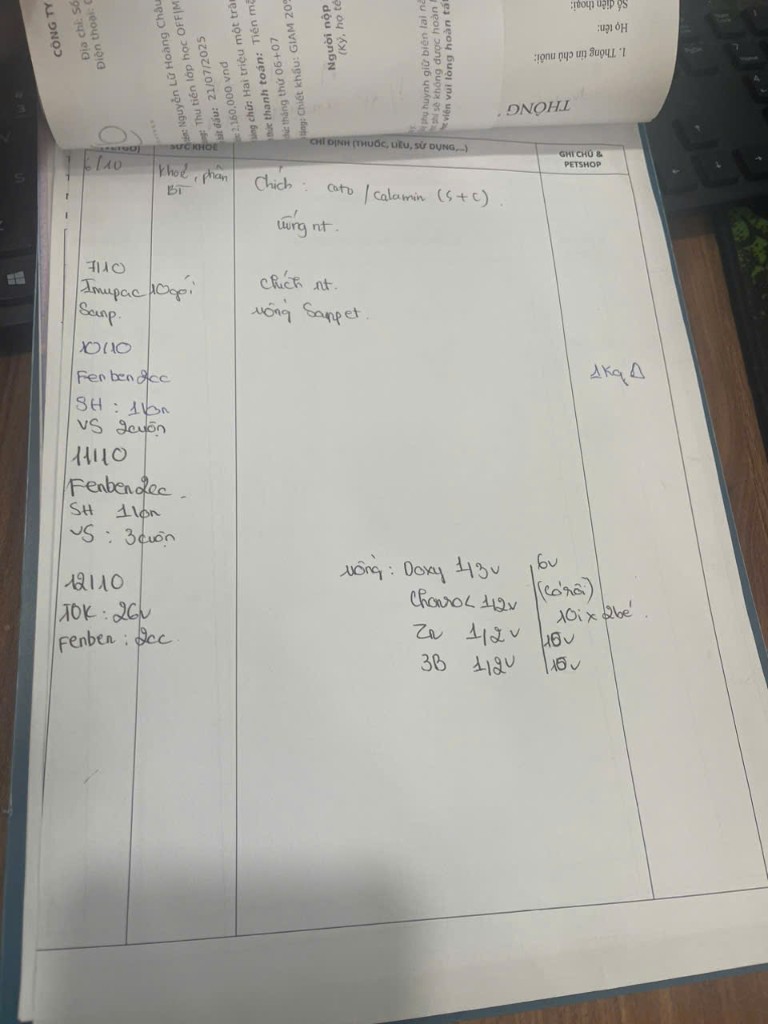 CÔNG TY
Địa chỉ: Số
Điện thoại:
Nguyễn Lữ Hoàng Châu
Thu tiền lớp học OFF|M
21/07/2025
2,160,000 vnđ
chữ: Hai triệu một trăm
thanh toán: Tiền mặ
tháng thứ 06+07
Chiết khấu: GIAM 20%
Người nộp
(Ký, họ tê
THÔNG
1. Thông tin chủ nuôi:
Họ tên:
Số điện thoại:
SỨC KHỎE
CHỈ ĐỊNH (THUỐC, LIỀU, SỬ DỤNG,...)
GHI CHÚ & PETSHOP
6/10
khoẻ, phân BT
Chích : cato / calamin (S + C).
uống nt.
7/10
Imupac 10gói
chích nt.
Sanp.
uống Sanpet.
10/10
Fenben 2cc
1kg
SH : 1lon
VS 2cuộn
11/10
Fenben 2cc.
SH 1lon
VS : 3cuộn
12/10
TOK : 26v
Fenben : 2cc
uống : Doxy 1/3v 6v
1/2v (có rồi)
10i x 2bé.
Zn 1/2v 15v
3B 1/2v 15v